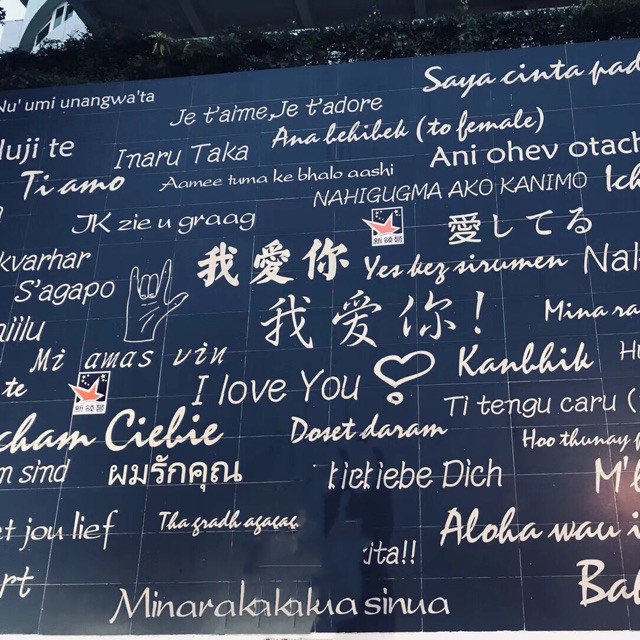 Nu' umi unangwa'ta
Saya cinta pad
Je t'aime,Je t'adore
Ana behibek (to female)
Huji te
Inaru Taka
Ani ohev otach
Ti amo
Aamee tuma ke bhalo aashi
NAHIGUGMA AKO KANIMO
Ich
JK zie u graag
新辣道
愛してる
kvarhar
我愛你
Yes kez sirumen
Nak
S'agapo
niilu
我爱你!
Mina ra
Mi amas vin
Kanbhik
te
新辣道
I love You
Ti tengu caru (
cham Ciebie
Doset daram
Hoo thunay
m sind
ผมรักคุณ
liebe Dich
M'b
et jou lief
Tha gradh agagac
Aloha wau i
ita!!
art
Bal
Minarakakakua sinua